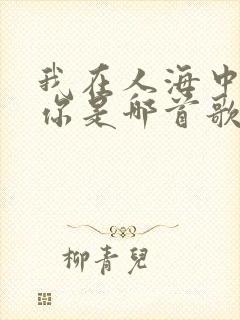 我在人海中
你是哪首歌
柳青兒